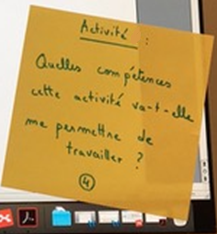 Activité :
Quelles compétences
cette activité va-t-elle
me permettre de
travailler ?
4